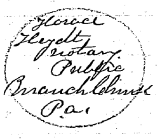 Horace
Heydt
Notary
Public
Mauch Chunk
Pa.